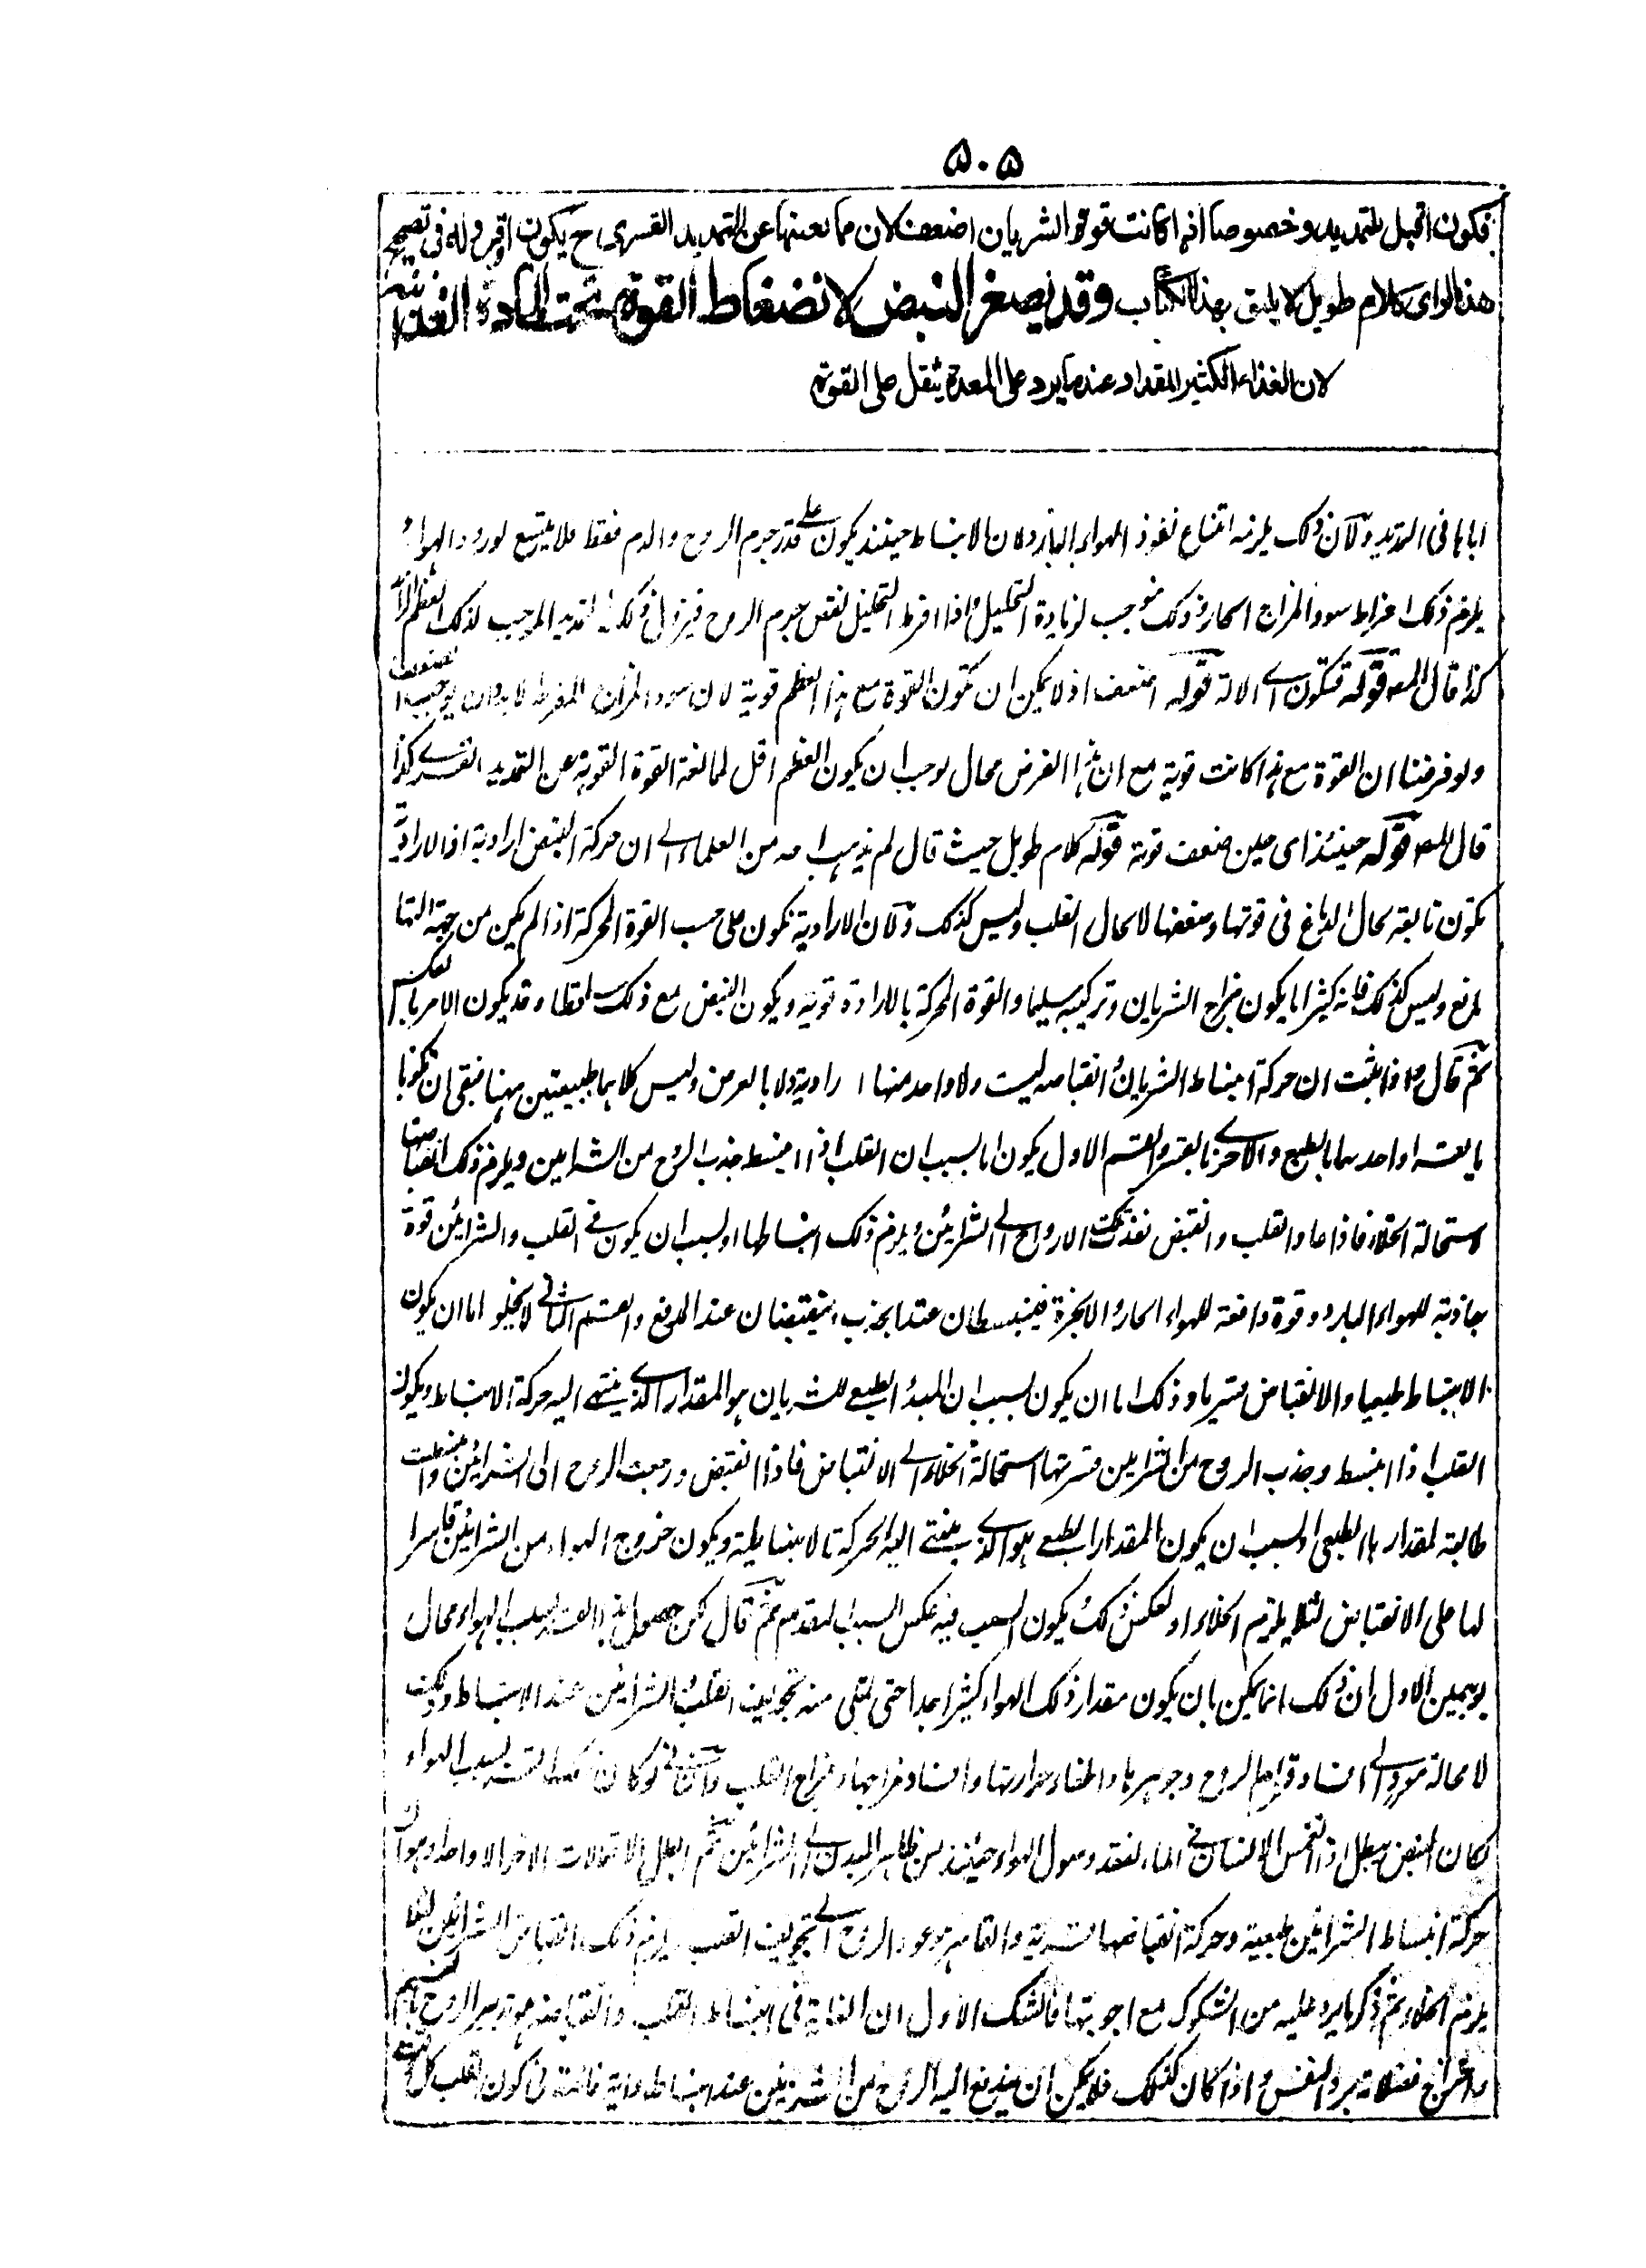 ۵۰۵
فتكون اقبل للتمديد وخصوصا اذا كانت قوة الشريان اضعف لان ممانعتها عن التمديد القسرى ح يكون اقل وله فى تصحيح
هذا الراى كلام طويل لا يليق بهذا الكتاب وقد يصغر النبض لانضغاط القوة تحت المادة الغذائية
لان الغذاء الكثير المقدار عندما يرد على المعدة يثقل على القوة
فى التمديد ولان ذلك يلزمه امتناع نفوذ الهواء البارد لان الانبساط حينئذ يكون على قدر جرم الروح والدم فقط فلا يتسع لورود الهواء
يلزم ذلك افراط سوء المزاج الحار وذلك موجب لزيادة التحليل واذا افرط التحليل نقص جرم الروح فيزول ذلك التمديد الموجب لذلك العظم الزائد
كذا قال المص قوله فتكون اى الالة قوله اضعف اذ لا يمكن ان تكون القوة مع هذا العظم قوية لان سوء المزاج المفرط لا بد وان يوجب الضعف
ولو فرضنا ان القوة مع هذا كانت قوية مع ان هذا الفرض محال لوجب ان يكون العظم اقل لممانعة القوة القوية عن التمديد القسرى كذا
قال المص قوله حينئذ اى حين ضعف قوته قوله كلام طويل حيث قال لم يذهب احد من العلماء الى ان حركة النبض ارادية اذ الارادية
تكون تابعة لحال الدماغ فى قوتها وضعفها لا لحال القلب وليس كذلك ولان الارادية تكون على حسب القوة المحركة اذا لم يكن من جهة الالة
مانع وليس كذلك فانه كثيرا ما يكون مزاج الشريان وتركيبه سليما والقوة المحركة بالارادة قوية ويكون النبض مع ذلك ساقطا وقد يكون الامر بالعكس
ثم قال واذا ثبت ان حركة انبساط الشريان وانقباضه ليست ولا واحد منها ارادية ولا بالعرض وليس كلاهما طبيعيتين ههنا فبقى ان تكونا
بالقسر او احدهما بالطبع والاخرى بالقسر والقسم الاول يكون اما بسبب ان القلب اذا انبسط جذب الروح من الشرايين ويلزم ذلك انقباضها
لاستحالة الخلاء فاذا عاد القلب وانقبض نفذت تلك الارواح الى الشرائين ويلزم ذلك انبساطها او بسبب ان يكون فى القلب والشرائين قوة
جاذبة للهواء البارد وقوة دافعة للهواء الحار والابخرة فينبسطان عند الجذب وينقبضان عند الدفع والقسم الثانى لا يخلو اما ان يكون
الانبساط طبيعيا والانقباض قسريا وذلك اما ان يكون بسبب ان المبدأ الطبيعى للشريان هو المقدار الذى ينتهى اليه حركة الانبساط ويكون
القلب اذا انبسط وجذب الروح من الشرايين قسرتها استحالة الخلاء الى الانقباض فاذا انقبض ورجعت الروح الى الشرائين وانبسطت
طالبة لمقدارها الطبيعى او بسبب ان يكون المقدار الطبيعى هو الذى ينتهى اليه الحركة الانبساطية ويكون خروج الهواء من الشرائين قاسرا
لها على الانقباض لئلا يلزم الخلاء او بعكس ذلك يكون السبب فيه عكس السبب المقدم ثم قال لكن حصول هذا القسر بسبب الهواء محال
بوجهين الاول ان ذلك انما يمكن بان يكون مقدار ذلك الهواء كثيرا جدا حتى يمتلى منه تجويف القلب والشرائين عند الانبساط وذلك
لا محالة مود الى افساد قوام الروح وجوهرها واطفاء حرارتها وافساد مزاجها ومزاج القلب والثانى لو كان ذلك القسر بسبب الهواء
لكان النبض يبطل اذا انغمس الانسان فى الماء لفقد وصول الهواء حينئذ من ظاهر البدن الى الشرائين ثم ابطل الاحتمالات الاخر الا واحدا وهو ان
حركة انبساط الشرائين طبيعية وحركة انقباضها قسرية والقاسر هو عود الروح الى تجويف القلب يلزم ذلك انقباض الشرائين لئلا
يلزم الخلاء ثم ذكر ما يرد عليه من الشكوك مع اجوبتها فالشك الاول ان الغاية فى انبساط القلب وانقباضه هو ترويح الروح بالنسيم
واخراج فضلاته بردا لنفس واذا كان كذلك فلا يمكن ان يندفع اليه الروح من الشرائين عند انبساطه واية فائدة فى كون القلب كل